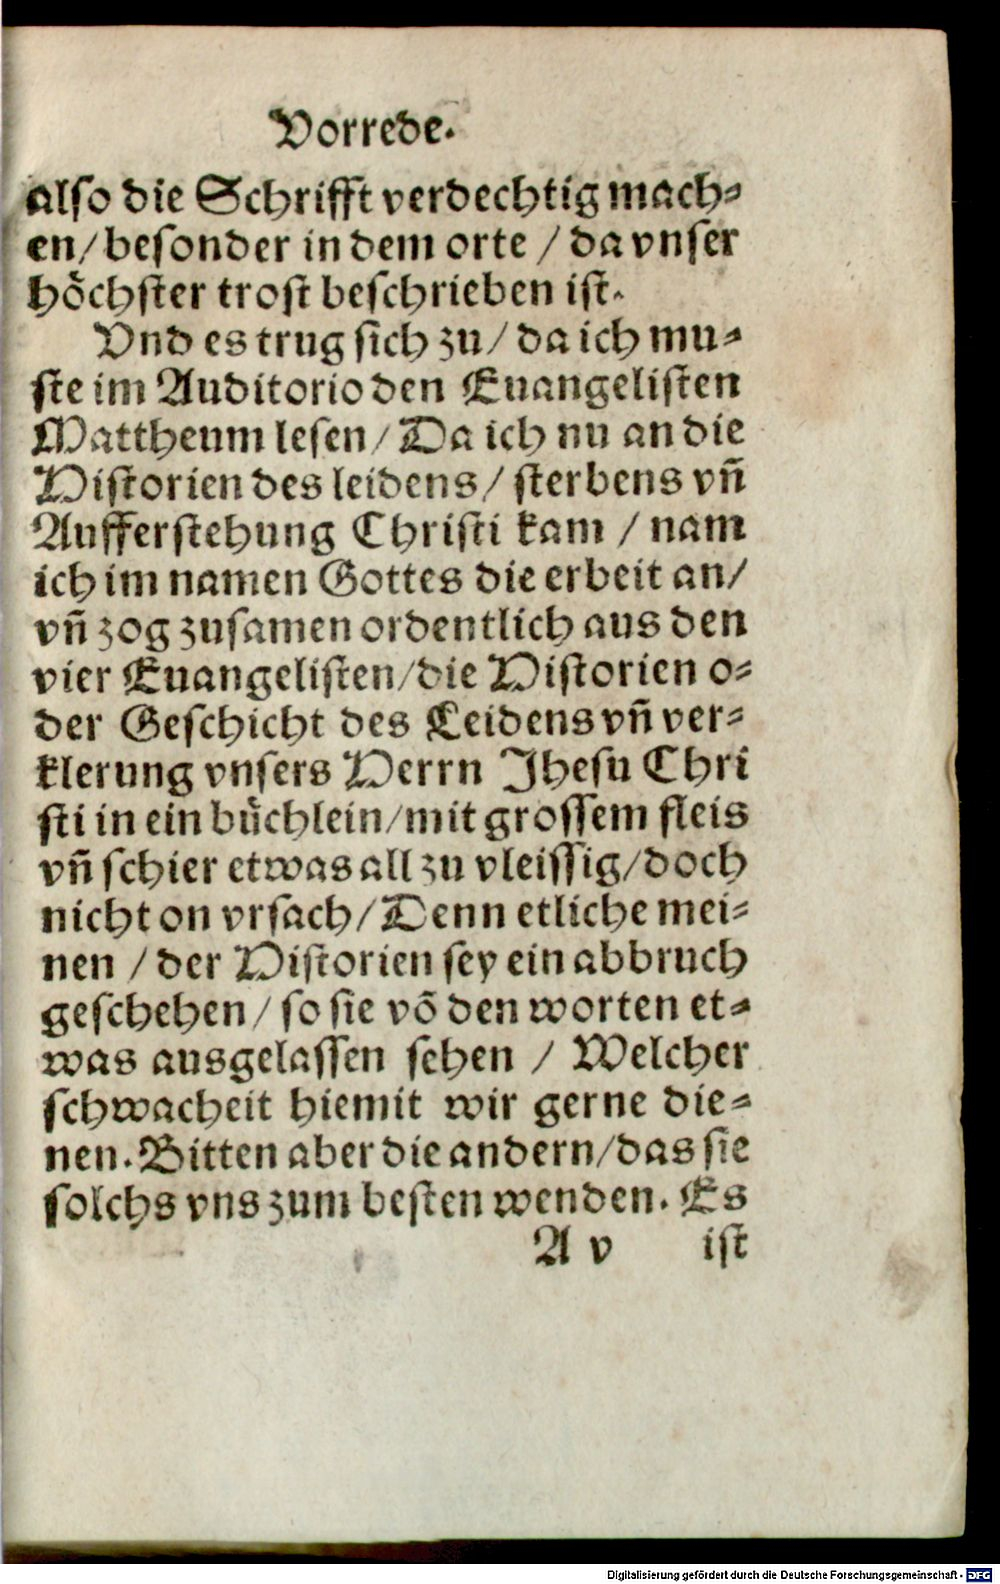 Vorrede.
also die Schrifft verdechtig mach-
en/ besonder in dem orte / da vnser
hoͤchster trost beschrieben ist.
Vnd es trug sich zu/ da ich mu-
ste im Auditorio den Euangelisten
Mattheum lesen/ Da ich nu an die
Historien des leidens/ sterbens vn̄
Aufferstehung Christi kam / nam
ich im namen Gottes die erbeit an/
vn̄ zog zusamen ordentlich aus den
vier Euangelisten/die Historien o-
der Geschicht des Leidens vn̄ ver-
klerung vnsers Herrn Jhesu Chri
sti in ein buͤchlein/mit grossem fleis
vn̄ schier etwas all zu vleissig/doch
nicht on vrsach/ Denn etliche mei-
nen / der Historien sey ein abbruch
geschehen/ so sie vō den worten et-
was ausgelassen sehen / Welcher
schwacheit hiemit wir gerne die-
nen. Bitten aber die andern/das sie
solchs vns zum besten wenden. Es
A v ist
Digitalisierung gefördert durch die Deutsche Forschungsgemeinschaft - DFG